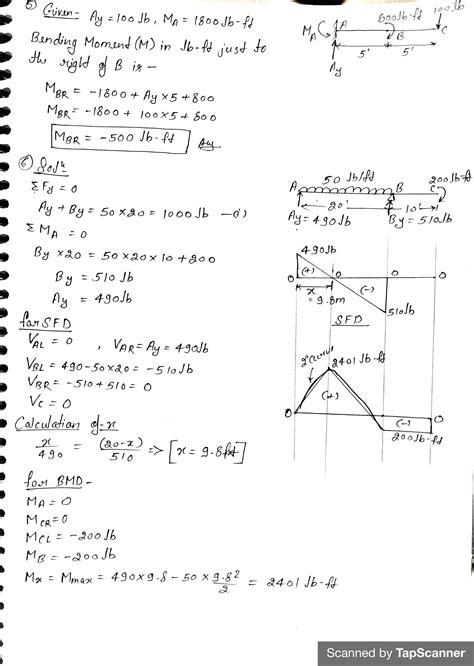 ⑤ Given - Ay = 100 lb, MA = 1800 lb-ft
Bending Moment (M) in lb-ft just to
the right of B is -
MBR = -1800 + Ay×5 + 800
MBR = -1800 + 100×5 + 800
MBR = -500 lb-ft
MA
A
800 lb-ft
100 lb
B
C
5'
5'
Ay
⑥ Solⁿ
ΣFy = 0
Ay + By = 50×20 = 1000 lb -(i)
ΣMA = 0
By×20 = 50×20×10 + 200
By = 510 lb
Ay = 490 lb
50 lb/ft
200 lb-ft
A
B
C
20'
10'
Ay = 490 lb
By = 510 lb
for SFD
VAL = 0 , VAR = Ay = 490 lb
VBL = 490 - 50×20 = -510 lb
VBR = -510 + 510 = 0
VC = 0
490 lb
0
(+)
0
0
0
(-)
x
= 9.8m
510 lb
SFD
Calculation of x
x/490 = (20-x)/510 => [x = 9.8 ft]
2° curve
2401 lb-ft
(+)
0
0
(-)
200 lb-ft
for BMD -
MA = 0
MCR = 0
MCL = -200 lb
MB = -200 lb
Mx = Mmax = 490×9.8 - 50×9.8²/2 = 2401 lb-ft
Scanned by TapScanner